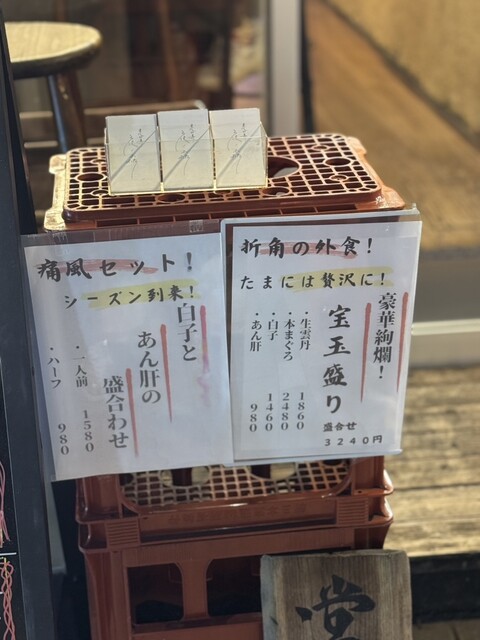 痛風セット!
シーズン到来!
白子と
あん肝の
盛合わせ
・一人前 1580
・ハーフ 980
折角の外食!
たまには贅沢に!
豪華絢爛!
宝玉盛り
盛合せ
3240円
・生雲丹 1860
・本まぐろ 2480
・白子 1460
・あん肝 980
堂